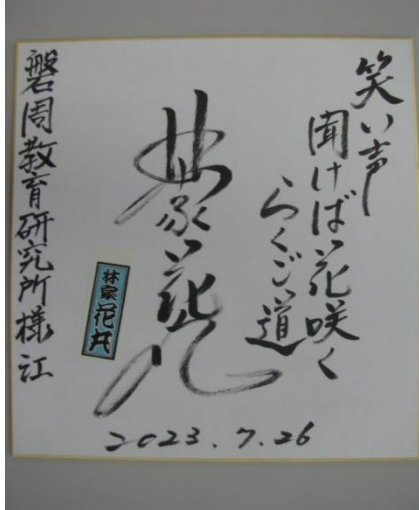 笑い声
聞けば花咲く
らくご道
林家花丸
林家花丸
磐周教育研究所様江
2023.7.26